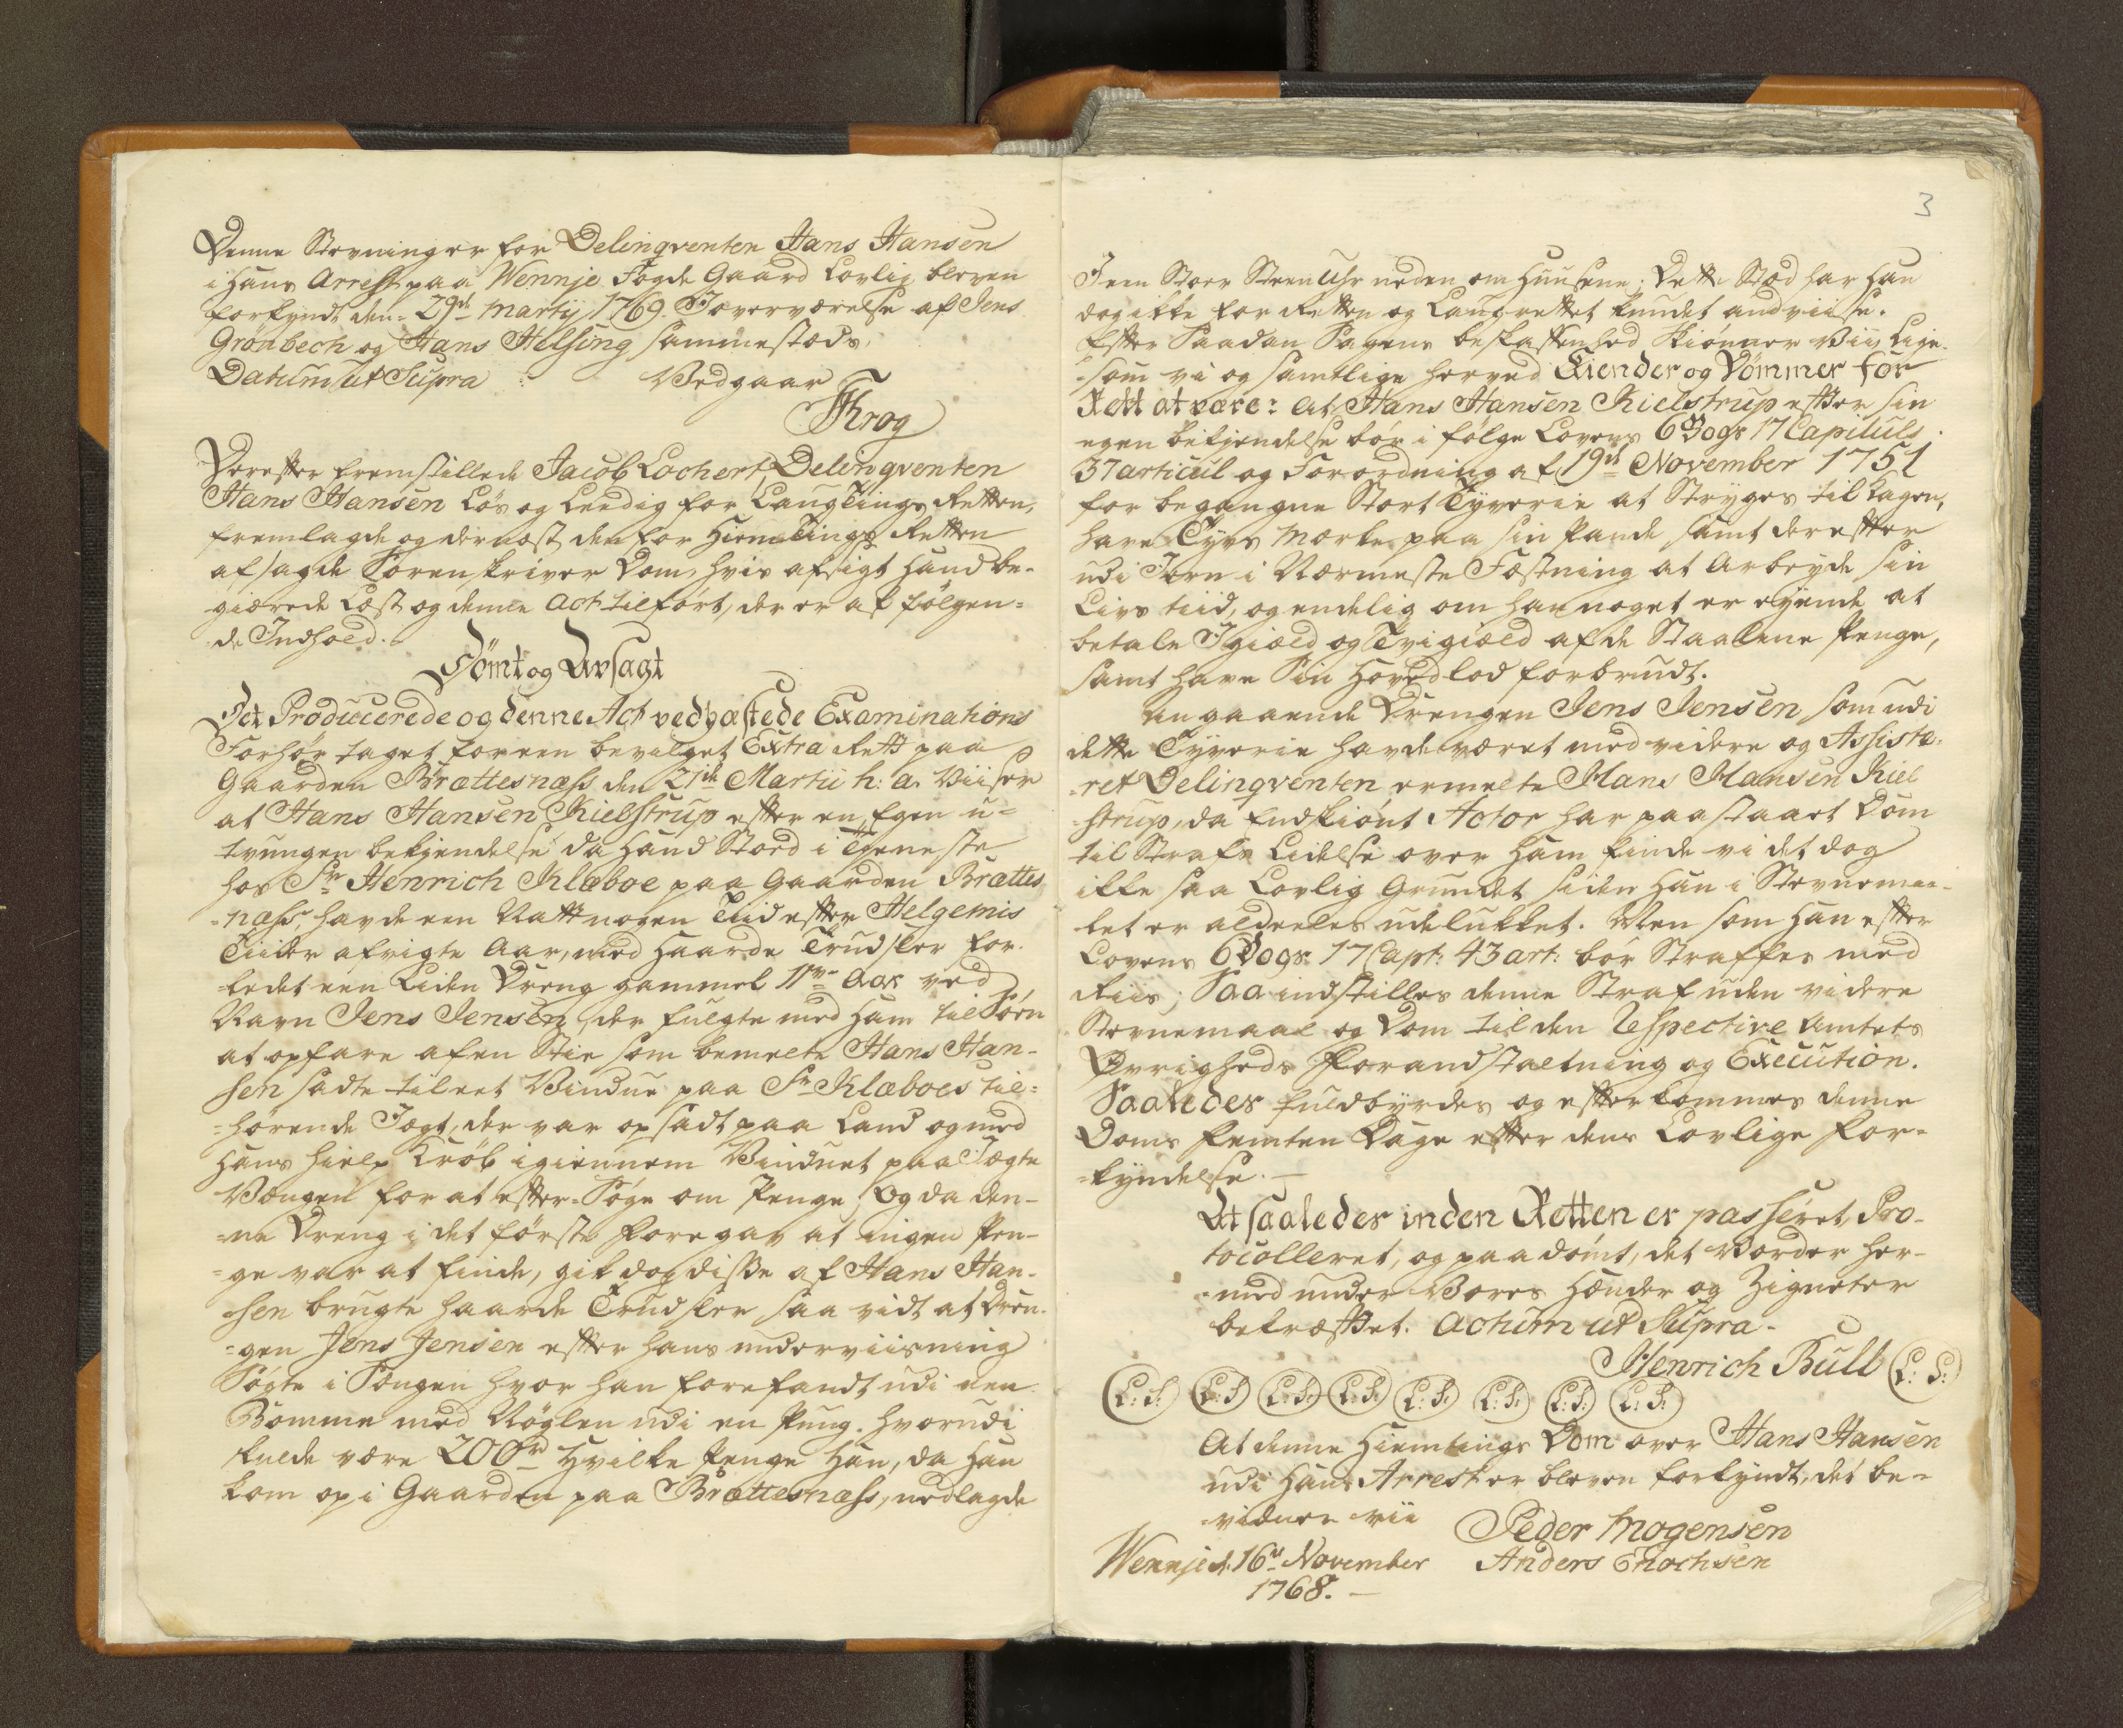 Denne Stevning er for Delinqventen Hans Hansen
i Hans Arrest paa Wennje Fogde Gaard Lovlig bleven
forkyndt den 29de martij 1769. I overværelse af Jens
Grønbech og Hans Helsing sammestæds.
Datum ut Supra Vedgaar
Krog
Derefter fremstillede Jacob Lochert, Delinqventen
Hans Hansen Løs og Leedig for Laugtings Retten,
fremlagde og dernæst den for Hiemtings Retten
afsagde Sorenskriver Dom, hvis afsigt hand be-
giærede Læst og denne Act tilført, der er af følgen-
de Indhold.
Dømt og Avsagt
Det Producerede og denne Act vedhæftede Examinations
Forhør taget for een bevilget Extra Rett paa
Gaarden Brættesnæss den 21de Martii h: a. Viiser
at Hans Hansen Kielstrup efter en Egen u-
tvungen bekjendelse da hand Stoed i Tjeneste
hos Sr Henrich Klæboe paa Gaarden Brættes
-næss, havde een Natt nogen Tiid efter Helgemis
Tiider afvigte Aar, med haarde Trudsler for-
-ledet een Liden Dreng gammel 11ve Aar ved
Navn Jens Jensen, der fulgte med ham til Søen
at opfare af en Stie som bemelte Hans Han-
sen sadte til eet Vindue paa Sr Klæboes til-
-hørende Jægt, der var opsadt paa Land og med
Hans hielp Krøb igiennem Vinduet paa Jægte
Vængen for at efter-Søge om Penge, Og da den-
-ne Dreng i det første foregav at ingen Pen-
-ge var at finde, gik dog disse af Hans Han-
sen brugte haarde Trudsler saa vidt at Dren-
-gen Jens Jensen efter hans underviisning
Søgte i Sængen hvor han forefandt udi een
Bomme med Nøglen udi en Pung, hvorudi
skulde være 200rd Hvilke Penge Han, da Han
kom op i Gaarden paa Brættesnæss, nedlagde
3
I een Stoer Steen Uhr neden om Huusene; Dette Stæd har Han
dog ikke for Retten og Laugrettet kundet andviise.
Efter Saadan Sagens beskaffenhed Skiønner Vii, Lige-
-som vi og samtlige herved Kiender og Dømmer for
Rett at være: At Hans Hansen Kielstrup efter sin
egen bekjendelse bør i følge Lovens 6 Bogs 17 Capituls
37 articul og Forordning af 19de November 1751
for begangne Stort Tyverie at Stryges til Kagen,
have Tyvs Mærke paa sin Pande samt derefter
udi Jern i Nærmeste Fæstning at Arbeyde sin
Livs tiid, og endelig om han noget er eyende at
betale Igiæld og Tvigiæld af de Staalne Penge,
samt have Sin Hovedlod forbrudt.
Angaaende Drengen Jens Jensen som udi
dette Tyverie havde været medvidere og Assiste-
-ret Delinqventen ermelte Hans Hansen Kiel
-strup, da Endskiønt Actor har paastaaet Dom
til Strafs Lidelse over ham finde vi det dog
ikke saa Lovlig Grundet siden Han i Stevnemaa-
let er aldeeles udelukket. Men som Han efter
Lovens 6 Bogs 17 Capt: 43 art: bør Straffes med
Riis; Saa indstilles denne Straf uden videre
Stevnemaal og Dom til den Respective Amtets
Øvrigheds Forandstaltning og Execution.
Saaledes fuldbyrdes og efterkommes denne
Doms femten Dage efter dens Lovlige For-
-kyndelse.
At saaledes inden Retten er passeret, Pro-
tocolleret, og paadømt, det Vorder her-
-med under Vores Hænder og Zigneter
bekræftet. Actum ut Supra.
Henrich Bull (L: S:)
(L: S:) (L: S:) (L: S:) (L: S:) (L: S:) (L: S:) (L: S:) (L: S:)
At denne Hiemtings Dom over Hans Hansen
udi Hans Arrest er bleven forkyndt, det be-
-vidner vii Peder Mogensen
Wennje d: 16de November Anders Enochsen
1768.